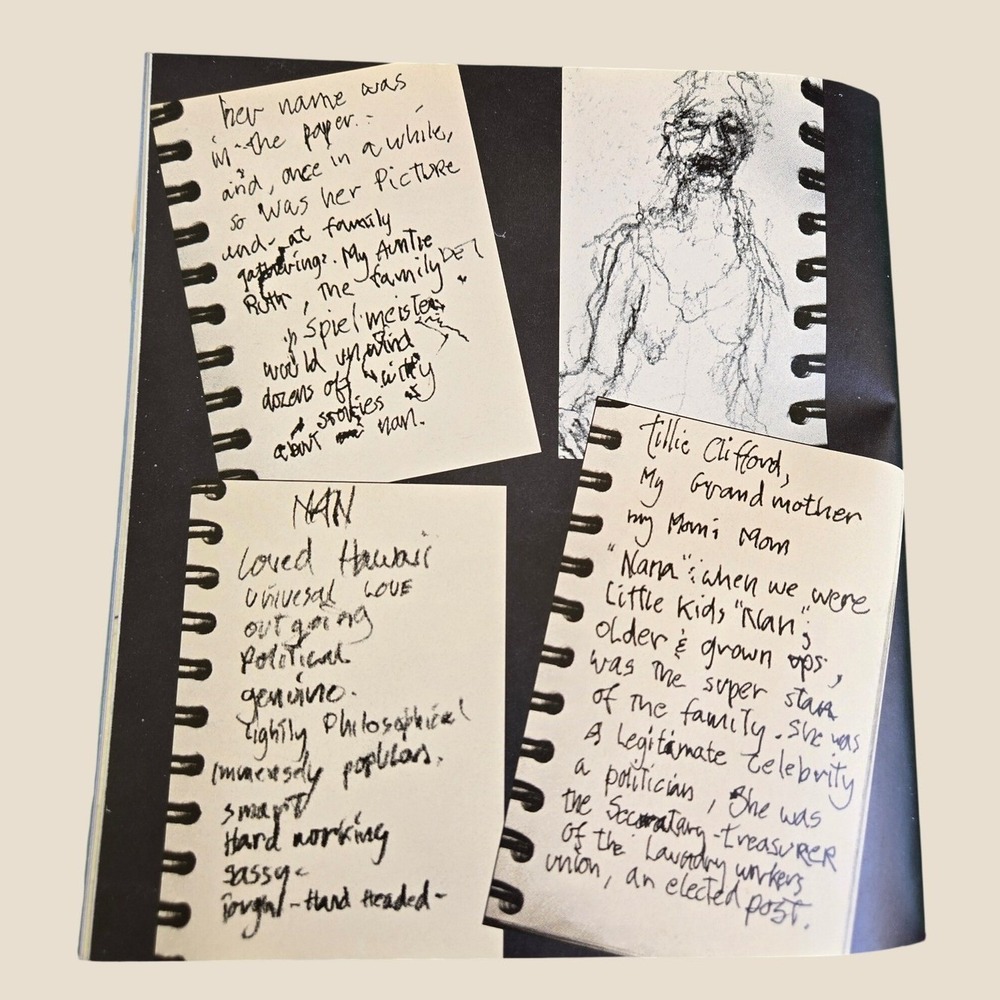 her name was
in the paper..
and, once in a while,
so was her Picture
and at family
gatherings. My Auntie
Ruth, the family DE
"Spielmeister
would unwind
dozens of "witty
stories
about nan.
Tillie Clifford,
My Grandmother
my Mom's Mom
"Nana": when we were
Little kids "Nan",
older & grown ups,
was the super star
of the family. She was
A Legitimate Celebrity
a politician, She was
the Secratary-treasurer
of the Laundry workers
union, an elected post.
NAN
Loved Hawaii
univesal LOVE
outgoing
Political
genuine.
Lightly Philosophical
Immensely popular.
smart
Hard working
sassy-
Tough-Hard Headed-